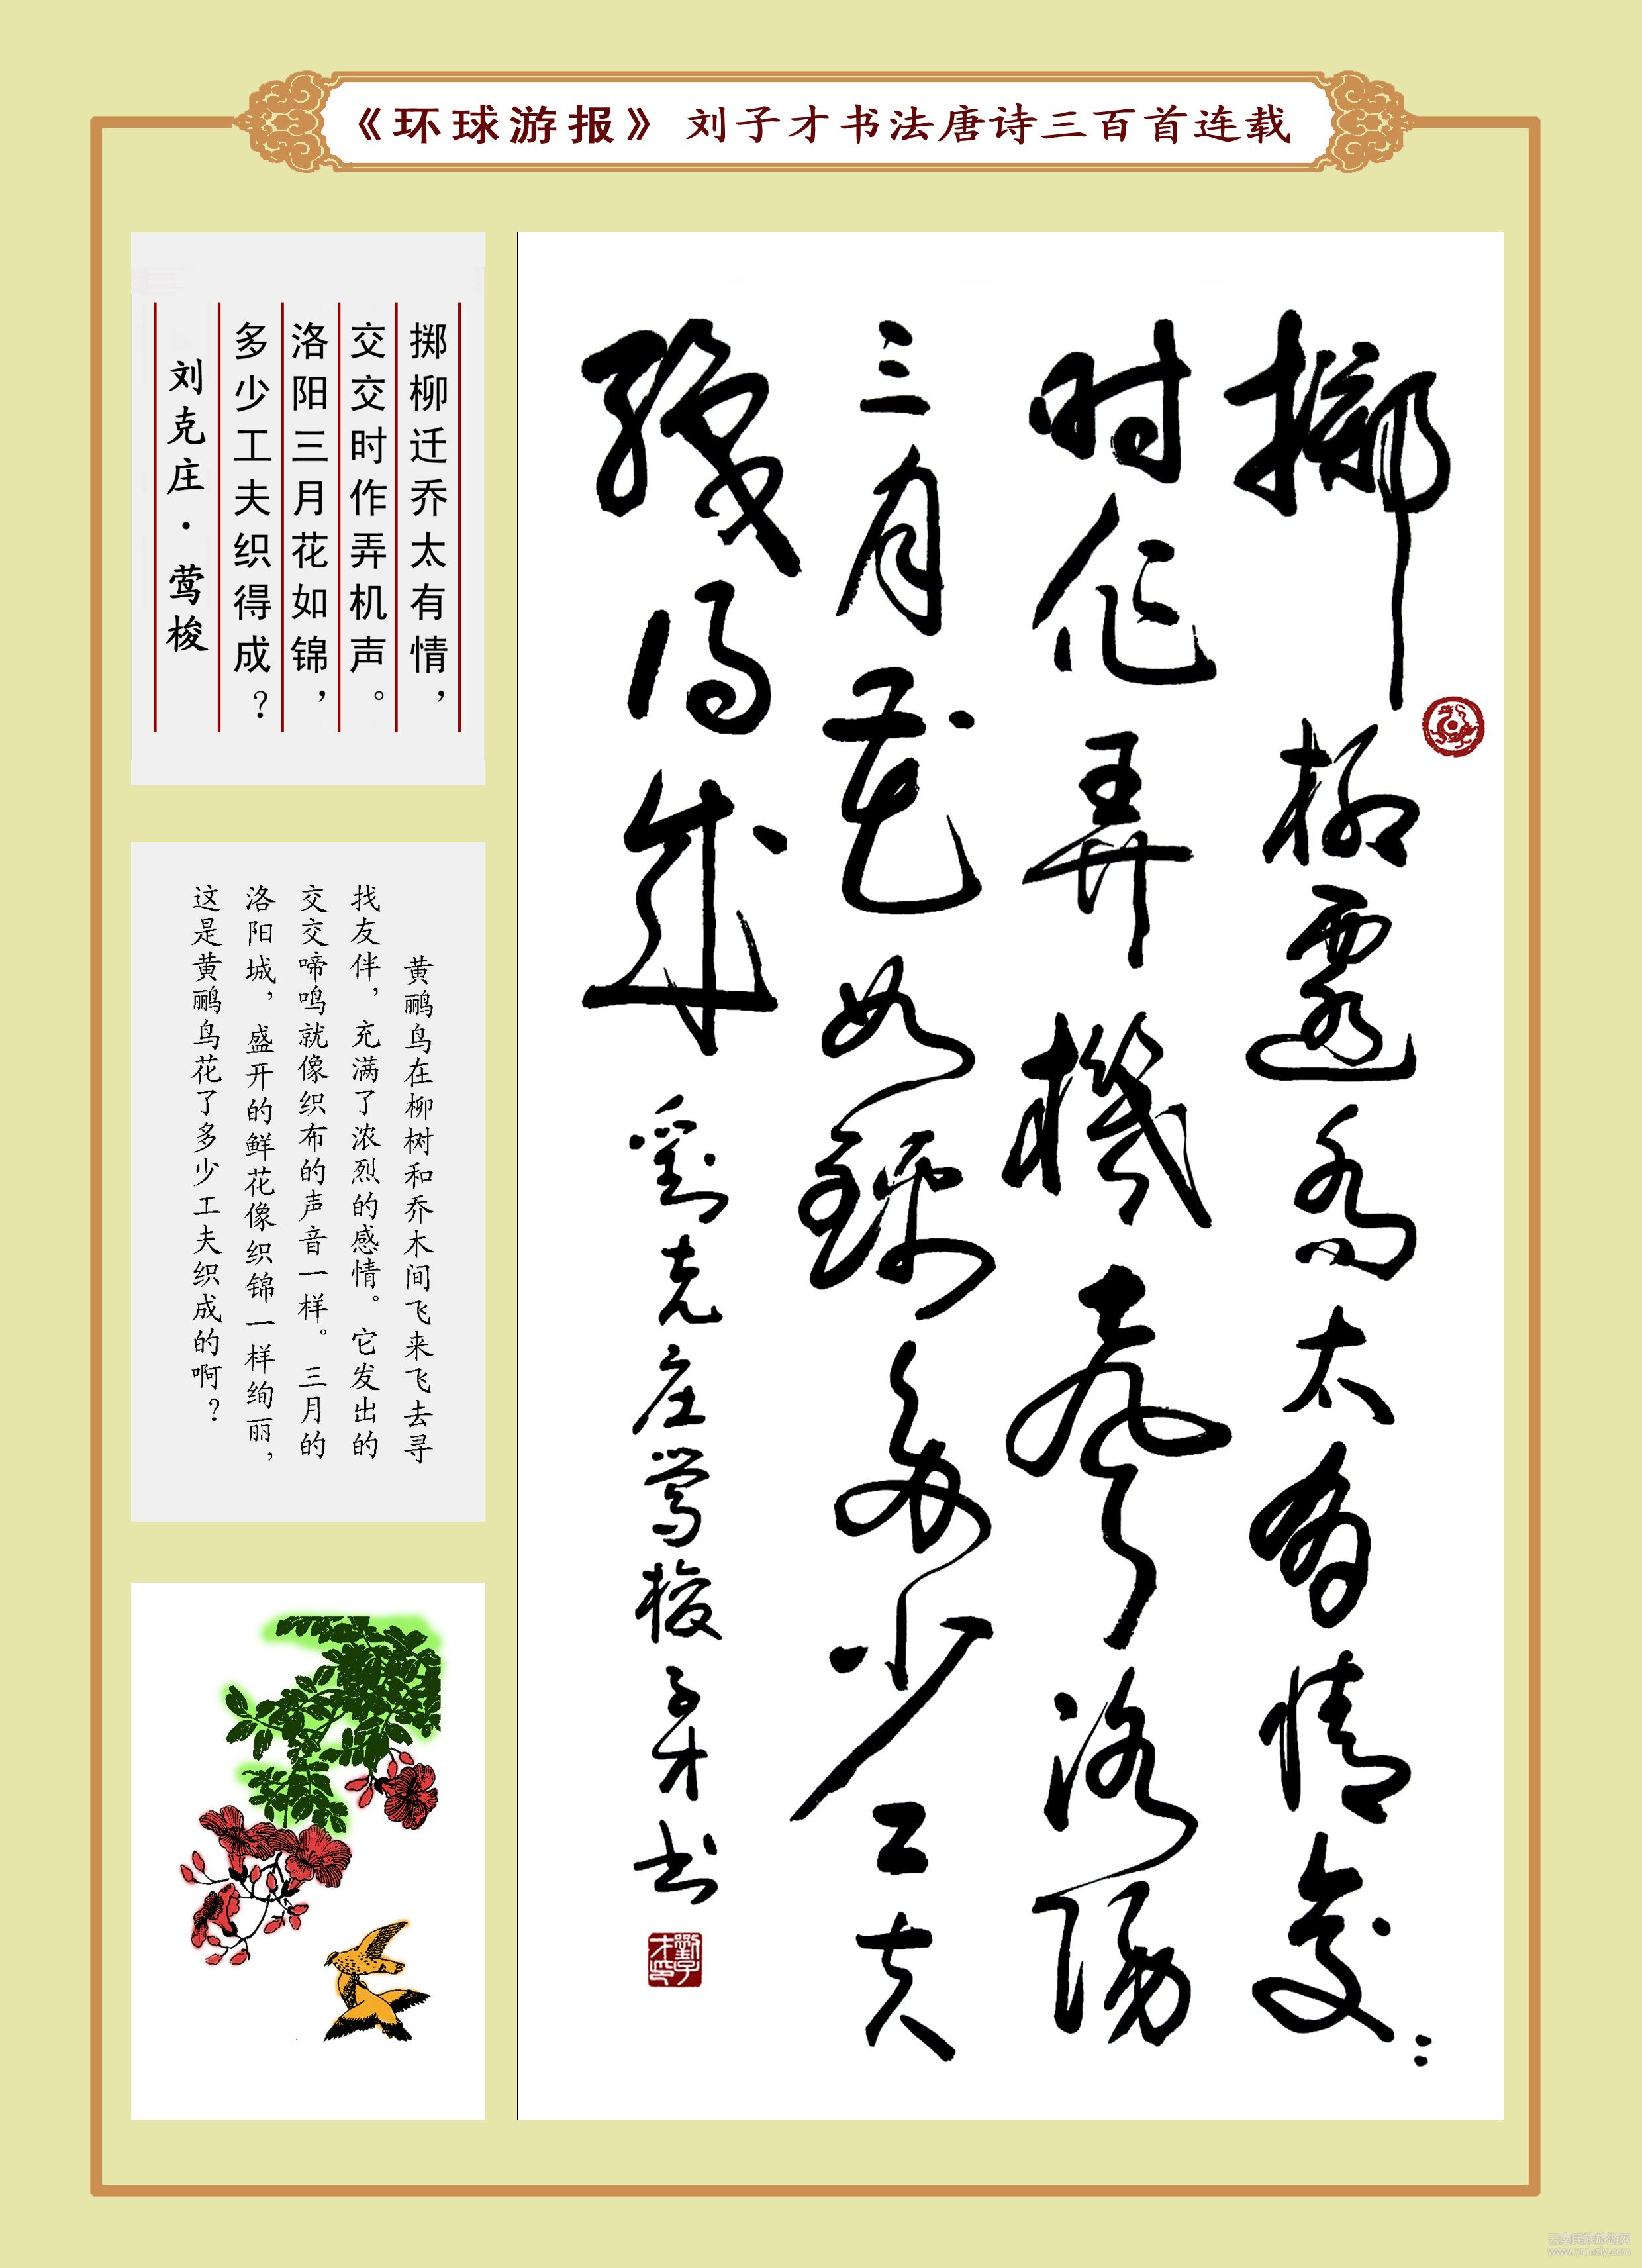 《环球游报》 刘子才书法唐诗三百首连载
掷柳迁乔太有情，
交交时作弄机声。
洛阳三月花如锦，
多少工夫织得成？
刘克庄·莺梭
黄鹂鸟在柳树和乔木间飞来飞去寻
找友伴，充满了浓烈的感情。它发出的
交交啼鸣就像织布的声音一样。三月的
洛阳城，盛开的鲜花像织锦一样绚丽，
这是黄鹂鸟花了多少工夫织成的啊？
掷柳遷乔太有情交：
时作弄機声洛陽
三月花如錦多少工夫
織得成 劉克庄莺梭 子才书
劉子才印